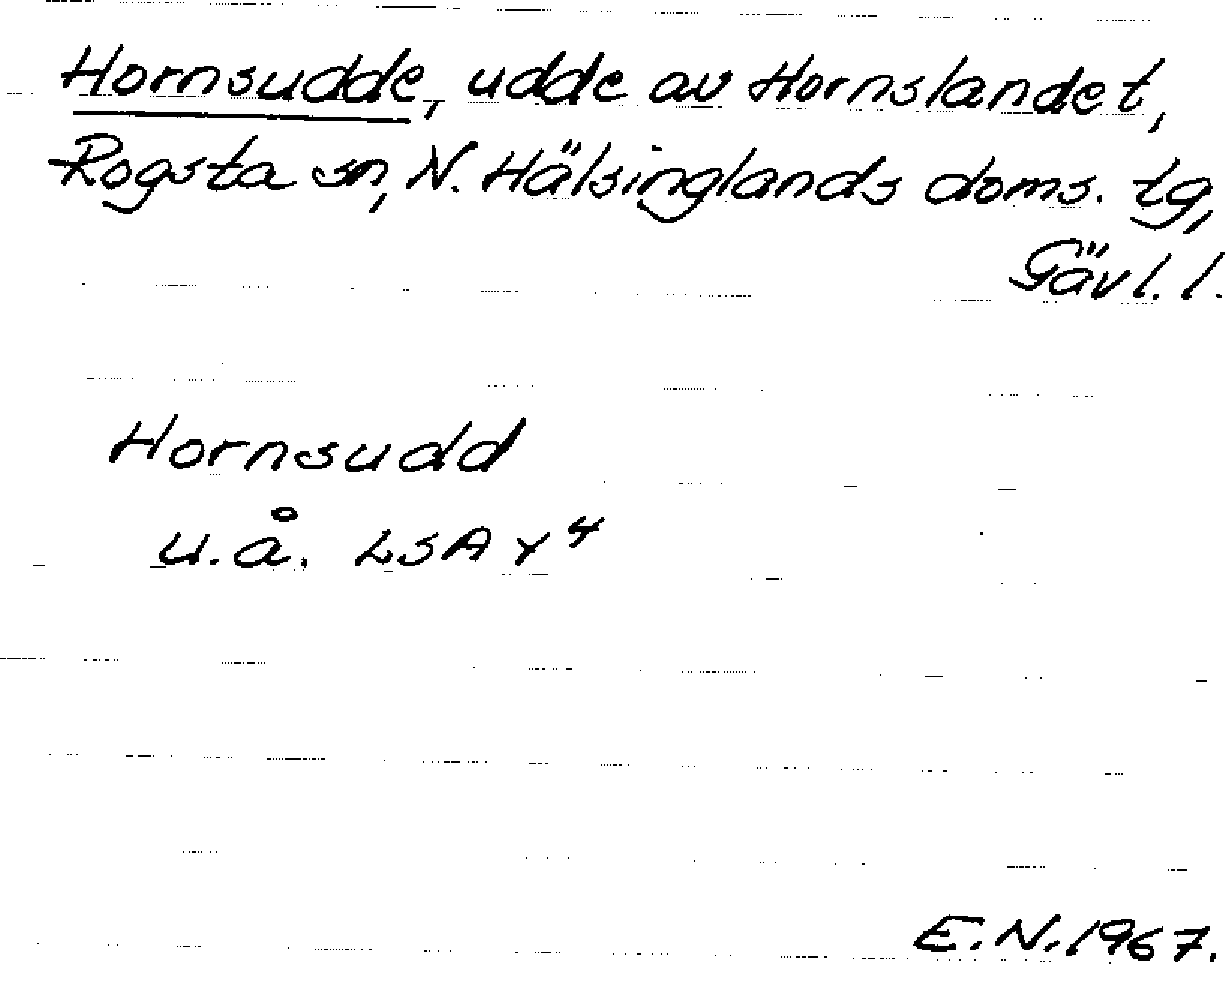 Hornsudde, udde av Hornslandet,
Rogsta sn, N. Hälsinglands doms. tg,
Gävl. l.
Hornsudd
u.å. LSA Y4
E.N. 1967.